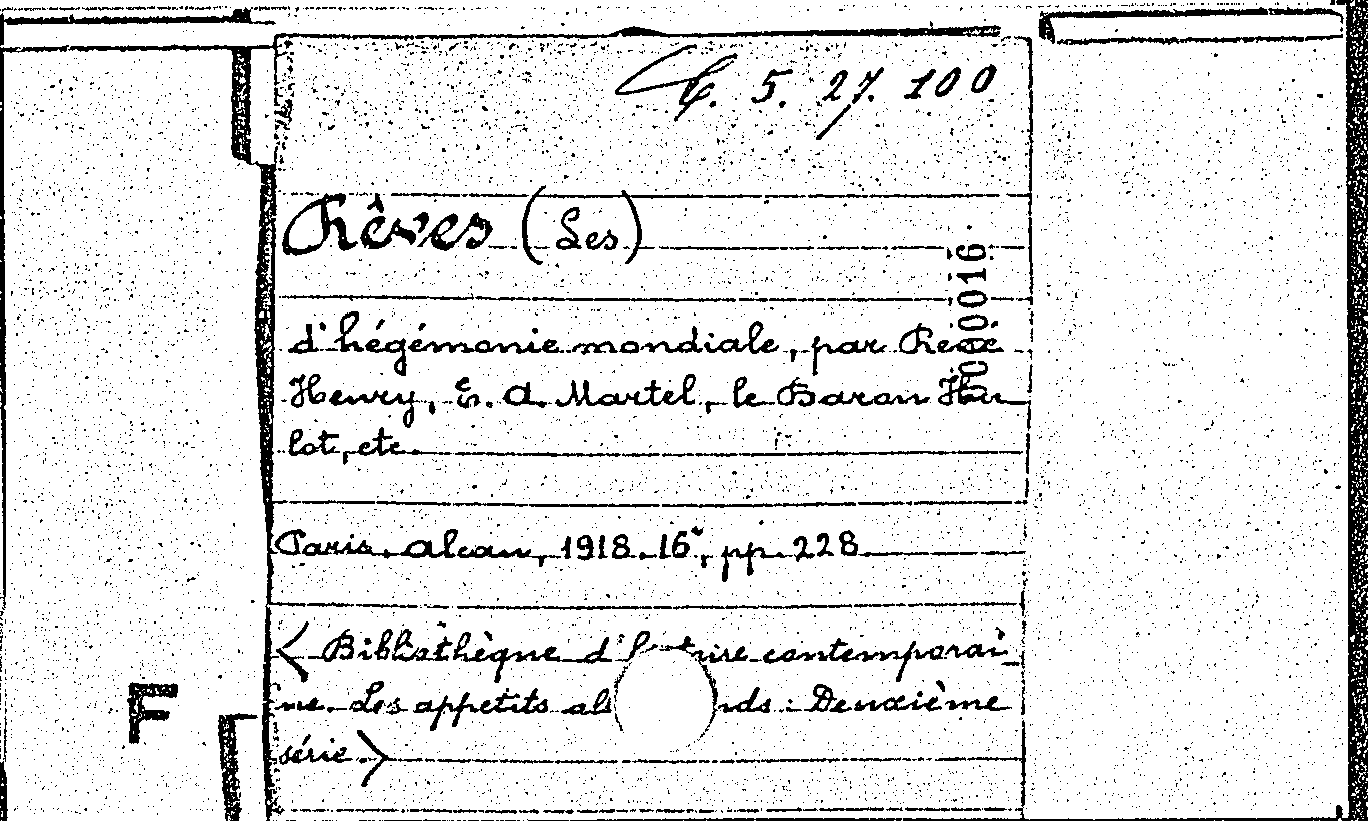 C. 5. 27. 100
Rêves (Les)
0000016
d'hégémonie mondiale, par René
Henry, E. A. Martel, le Baron Hu-
lot, etc.
Paris. Alcan, 1918. 16°, pp. 228
< Bibliothèque d'histoire contemporai-
ne. Les appetits al nds : Deuxième
série. >
F